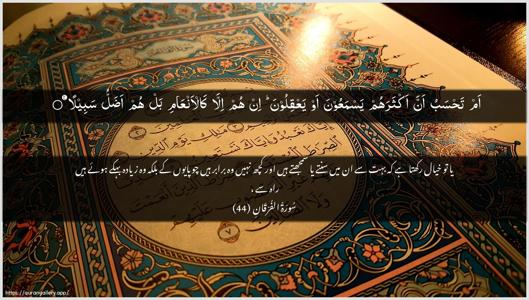 اَمۡ تَحۡسَبُ اَنَّ اَكۡثَرَهُمۡ يَسۡمَعُوۡنَ اَوۡ يَعۡقِلُوۡنَ‌ ؕ اِنۡ هُمۡ اِلَّا كَالۡاَنۡعَامِ‌ بَلۡ هُمۡ اَضَلُّ سَبِيۡلًا
یا تو خیال رکھتا ہے کہ بہت سے ان میں سنتے یا سمجھتے ہیں اور کچھ نہیں وہ برابر ہیں چوپایوں کے بلکہ وہ زیادہ بہکے ہوئے ہیں
راہ سے،
سُوۡرَةُ الفُرقان (44)
https://qurangallery.app/